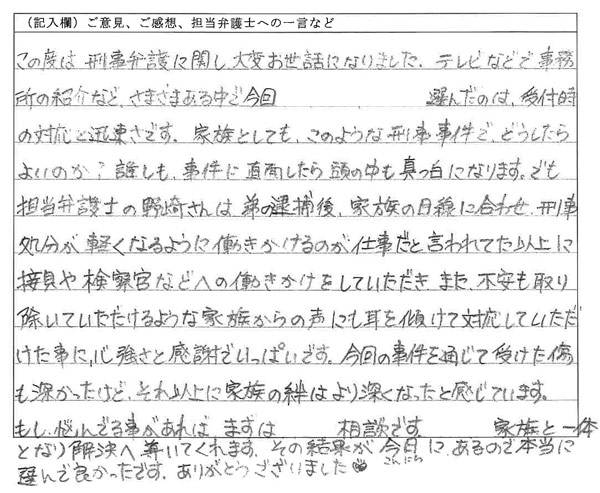 (記入欄) ご意見、ご感想、担当弁護士への一言など
この度は刑事弁護に関し大変お世話になりました。テレビなどで事務
所の紹介など、さまざまある中で今回 選んだのは、受付時
の対応と迅速さです。家族としても、このような刑事事件で、どうしたら
よいのか?誰しも、事件に直面したら頭の中も真っ白になります。でも
担当弁護士の野崎さんは弟の逮捕後、家族の目線に合わせ、刑事
処分が軽くなるように働きかけるのが仕事だと言われてた以上に
接見や検察官などへの働きかけをしていただき、また、不安も取り
除いていただけるような家族からの声にも耳を傾けて対応していただ
けた事に、心強さと感謝でいっぱいです。今回の事件を通じて受けた傷
も深かったけど、それ以上に家族の絆はより深くなったと感じています。
もし、悩んでる事があれば まずは 相談です 家族と一体
となり解決へ導いてくれます。その結果が今日に、あるので本当に
こんにち
選んで良かったです。ありがとうございました